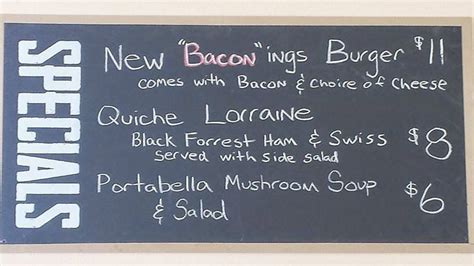 SPECIALS
New "Bacon"ings Burger $11
comes with Bacon & Choire of Cheese
Quiche Lorraine
Black Forrest Ham & Swiss $8
served with side salad
Portabella Mushroom Soup $6
& Salad